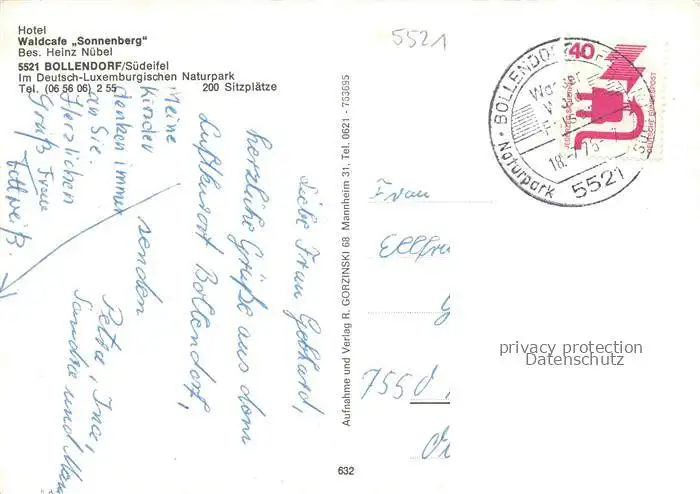 Hotel
Waldcafe „Sonnenberg"
Bes. Heinz Nübel
5521 BOLLENDORF/Südeifel
Im Deutsch-Luxemburgischen Naturpark
Tel. (06 56 06) 2 55 200 Sitzplätze
5521
Liebe Frau Gothard,
herzliche Grüße aus dem
Luftkurort Bollendorf,
senden
Petra, Ina,
Sandra und
Meine
Kinder
denken immer
an Sie.
Herzlichen
Gruß Frau
Aufnahme und Verlag R. GORZINSKI 68 Mannheim 31, Tel. 0621 - 753695
632
BOLLENDORF
Naturpark
18.-7.75
5521
40
JEDERZEIT SICHERHEIT
DEUTSCHE BUNDESPOST
Frau
755
privacy protection
Datenschutz